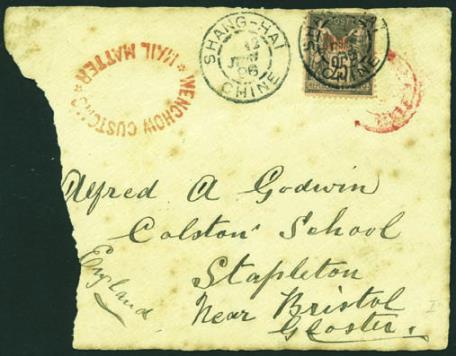 WENCHOW CUSTOMS * MAIL MATTER *
SHANG-HAI
12
JUIN
96
CHINE
POSTE
25
CHINE
Alfred A Godwin
Colston's School
Stapleton
Near Bristol
Gloster.
England